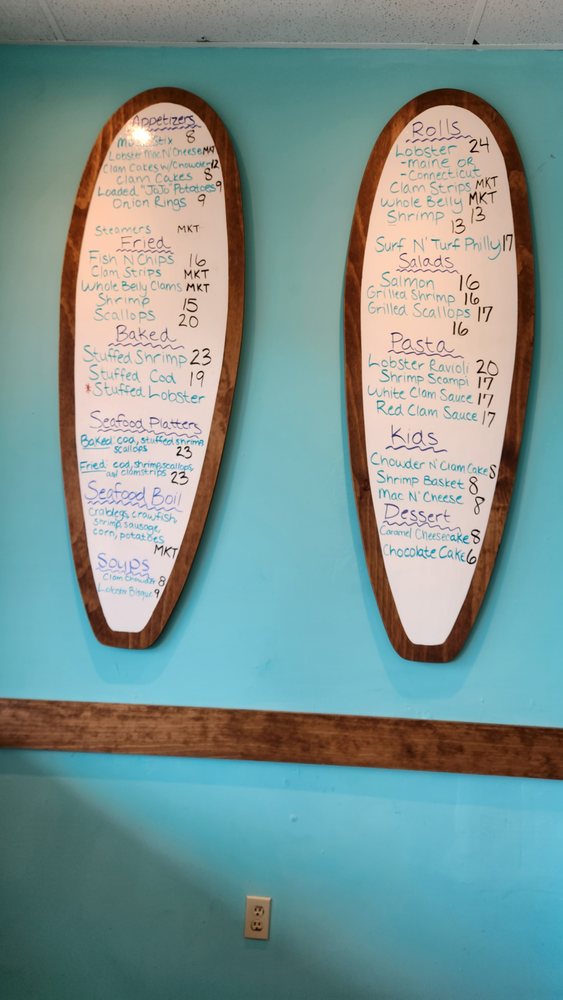 Appetizers
Mozz Stix 8
Lobster Mac N' Cheese MKT
Clam Cakes w/Chowder 12
Clam Cakes 8
Loaded "JoJo" Potatoes 9
Onion Rings 9
Steamers MKT
Fried
Fish N Chips 16
Clam Strips MKT
Whole Belly Clams MKT
Shrimp 15
Scallops 20
Baked
Stuffed Shrimp 23
Stuffed Cod 19
*Stuffed Lobster
Seafood Platters
Baked: cod, stuffed shrimp,
scallops 23
Fried: cod, shrimp, scallops,
and clam strips 23
Seafood Boil
crablegs, crawfish,
shrimp, sausage,
corn, potatoes
MKT
Soups
Clam Chowder 8
Lobster Bisque 9
Rolls
Lobster 24
-maine OR
-Connecticut
Clam Strips MKT
Whole Belly MKT
Shrimp 13
13
Surf N' Turf Philly 17
Salads
Salmon 16
Grilled Shrimp 16
Grilled Scallops 17
16
Pasta
Lobster Ravioli 20
Shrimp Scampi 17
White Clam Sauce 17
Red Clam Sauce 17
Kids
Chowder N' Clam Cake 8
Shrimp Basket 8
Mac N' Cheese 8
Dessert
Caramel Cheesecake 8
Chocolate Cake 6